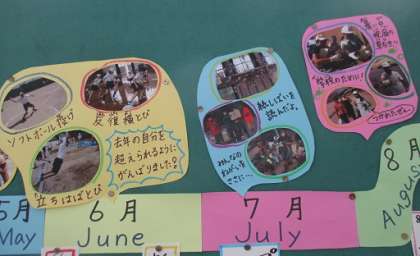 ソフトボール投げ
反復横とび
立ちはばとび
去年の自分を
超えられるように
がんばりました!
紙しばいを
読んだよ。
みんなの
ねがいを
ささに…
学校のために!
つかめたぞー。
5月
May
6月
June
7月
July
8月
August